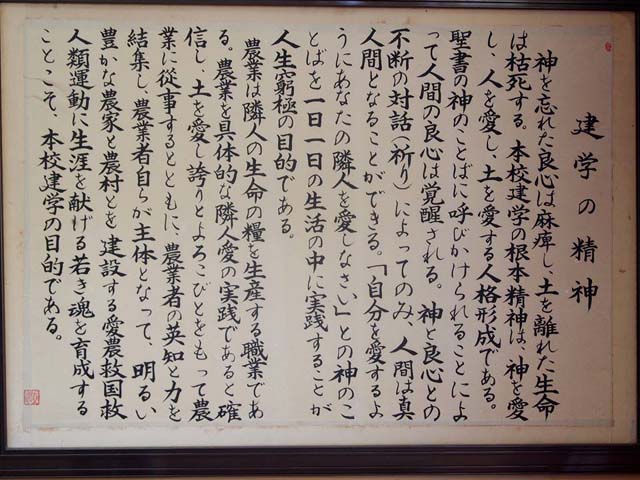 建学の精神
神を忘れた良心は麻痺し、土を離れた生命
は枯死する。本校建学の根本精神は、神を愛
し、人を愛し、土を愛する人格形成である。
聖書の神のことばに呼びかけられることによ
って人間の良心は覚醒される。神と良心との
不断の対話(祈り)によってのみ、人間は真
人間となることができる。「自分を愛するよ
うにあなたの隣人を愛しなさい」との神のこ
とばを一日一日の生活の中に実践することが
人生窮極の目的である。
農業は隣人の生命の糧を生産する職業であ
る。農業を具体的な隣人愛の実践であると確
信し、土を愛し誇りとよろこびとをもって農
業に従事するとともに、農業者の英知と力を
結集し、農業者自らが主体となって、明るい
豊かな農家と農村とを建設する愛農救国救
人類運動に生涯を献げる若き魂を育成する
ことこそ、本校建学の目的である。